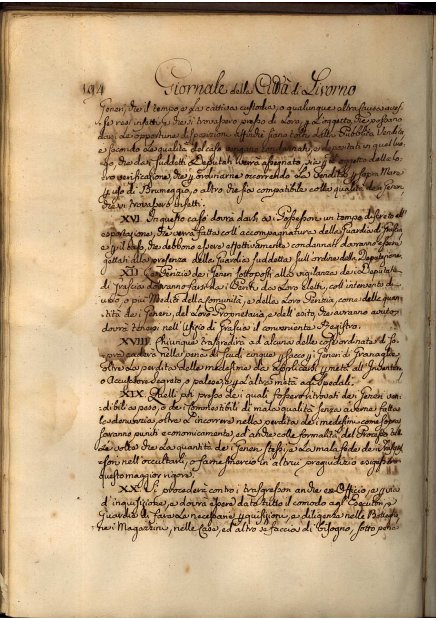 194 Giornale della Città di Livorno
Generi, che il tempo, e la cattiva custodia, o qualunque altra causa
infetti, che si trovassero presso di Loro, e l'oggetto, che possano
darsi Le opportune disposizioni affinchè siano tolti dalla Pubblica Vendita,
e secondo La qualità del caso vengano condannati, e depositati in quel luo
go, che da i suddetti Deputati Verrà assegnato, sia per oggetto della loro
verificazione, che per ordinarne occorrendo La Vendita per sopra Mare
per uso di Brumeggio, o altro che sia compatibile colla qualità dei Generi
che vi trovassero infetti.
XVI. In questo caso dovrà darsi a Possessori un tempo discreto all'
esportazione, che verrà fatta coll'accompagnatura della Guardia di Grascia
e per il caso, che debbono essere effettivamente condannati dovranno essere
gettati alla presenza della Guardia suddetta sull'ordine della Deputazione.
Perizie dei Generi sottoposti alla vigilanza dei Deputati
di Grascia dovranno farsi da Periti da Loro eletti, coll'intervento di
uno, o più Medici della Comunità, e della Loro Perizia, come della quan
tità dei Generi, del Loro Proprietario, e dell'esito, che avranno avuto
dovrà tenersi nell'Ufizio di Grascia il conveniente Registro.
XVIII. Chiunque trasgredirà ad alcuna delle cose ordinate di so
pra caderà nella pena di scudi cinque per sacco per i Generi di Granaglie,
oltre La perdita delle medesime da applicarsi per metà all'Inventore
o Accusatore segreto, o palese, e per L'altra metà agli Spedali.
XIX. Quelli poi presso dei quali fossero ritrovati dei Generi ven
dibili a peso, o dei Commestibili di mala qualità senza averne fatta
la denunzia, oltre L'incorrere nella perdita dei medesimi come sopra
saranno puniti economicamente, ed anche colle formalità del Processo tutte
Le volte che La quantità dei Generi stessi, e La mala fede dei Posses
sori nell'occultarli, o farne smercio in altrui pregiudizio esigesse
questo maggior rigore.
XX. Si procederà contro i trasgressori anche ex Officio, e per via
d'inquisizione, e dovrà essere da tutto il comodo agli Esecutori, e
Guardie di fare Le necessarie perquisizioni, e diligenze nelle Botteghe,
nei Magazzini, nelle Case, ed altro se faccia di bisogno, sotto pena